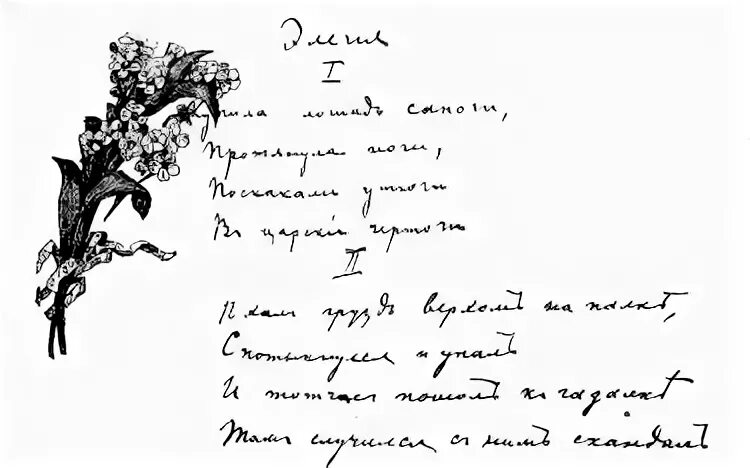 Элегия
I
Купила лошадь сапоги,
Протянула ноги,
Поскакали утюги
Въ царскія чертоги
II
Ѣхалъ груздь верхомъ на палкѣ,
Спотыкнулся и упалъ
И тотчасъ пошолъ къ гадалкѣ
Тамъ случился съ нимъ скандалъ